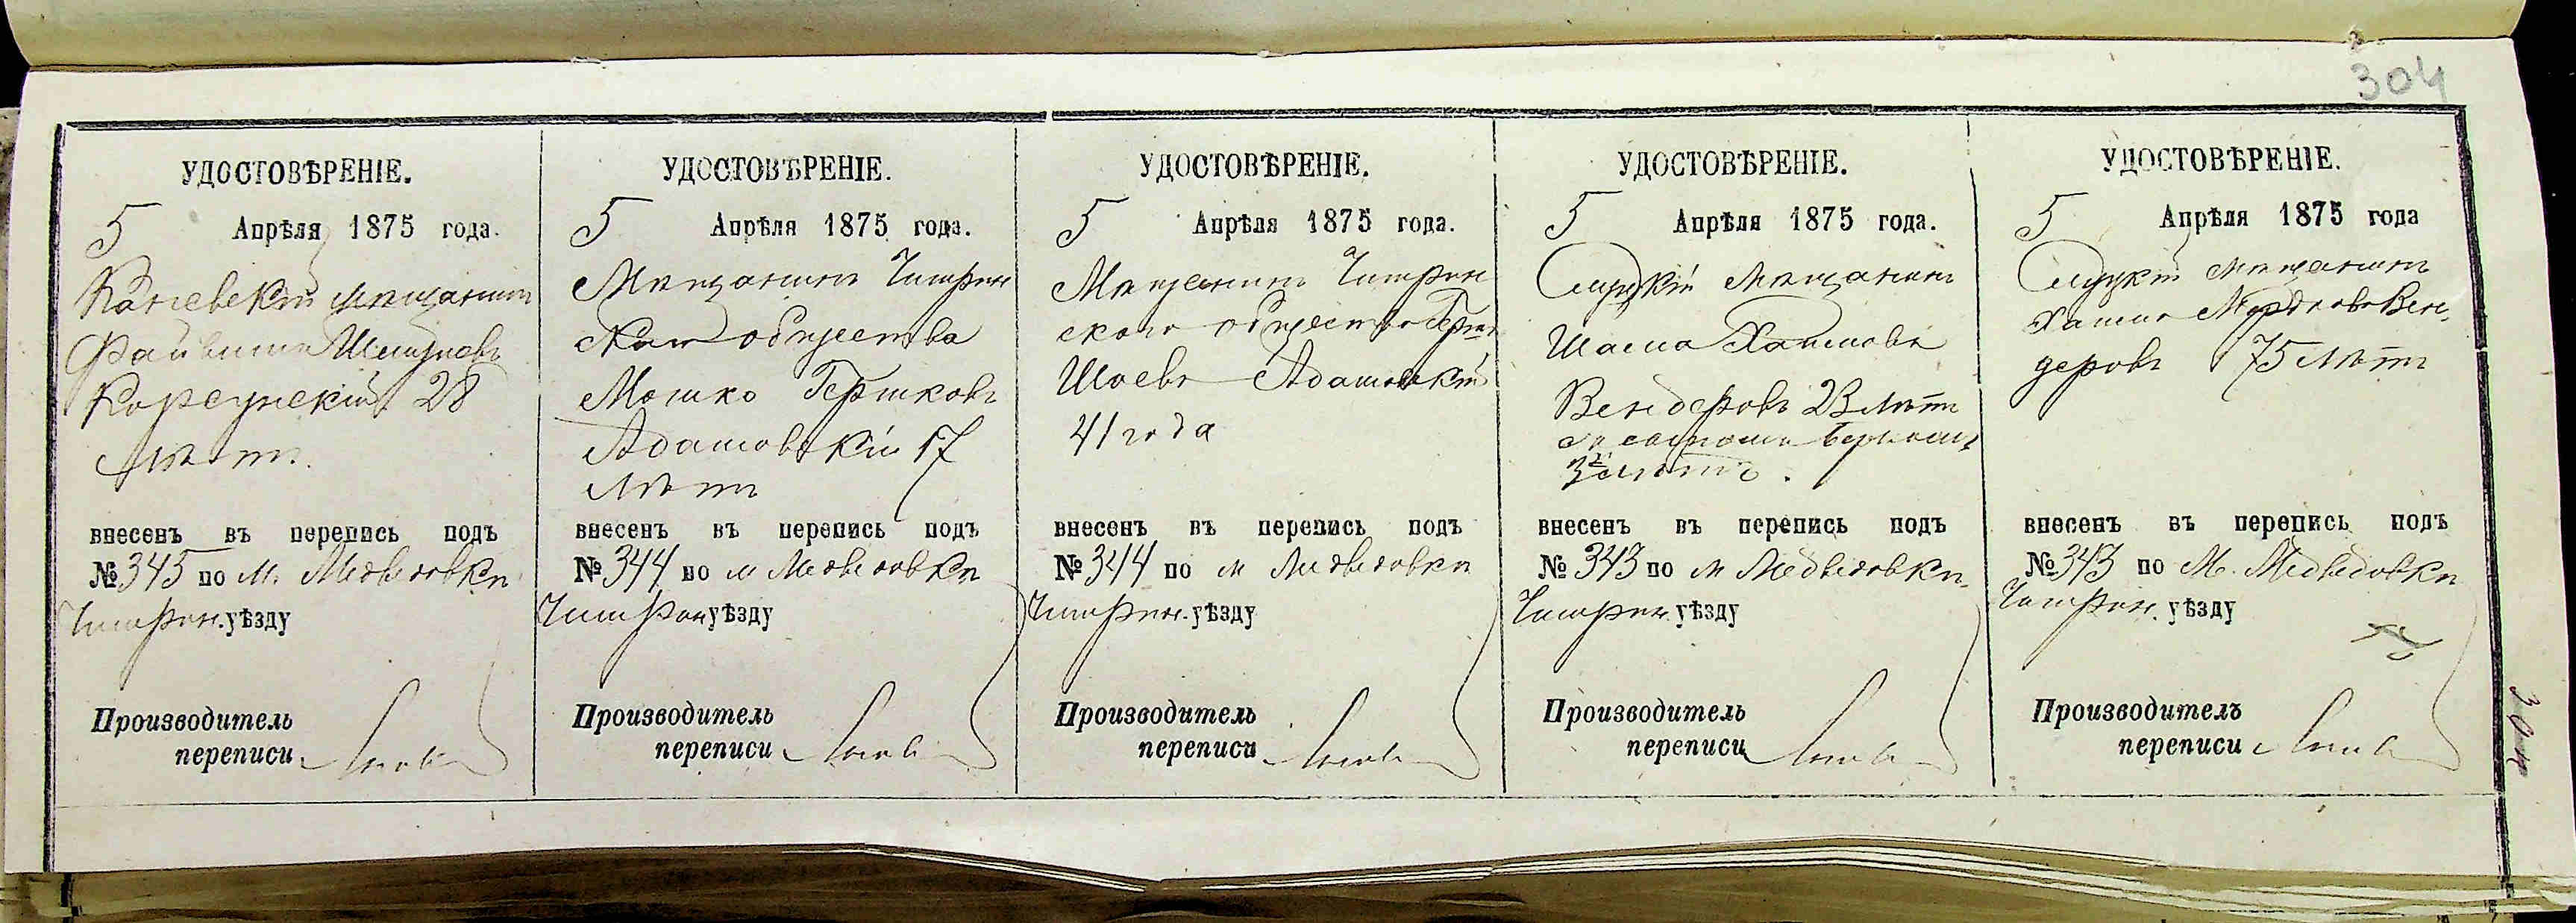 304
УДОСТОВѢРЕНІЕ.
5 Апрѣля 1875 года.
Каневскій мѣщанинъ
Файвишъ
Корсунскій 28
лѣтъ.
внесенъ въ перепись подъ
№ 345 по м. Медведовкѣ
Чигирин. уѣзду
Производитель
переписи
УДОСТОВѢРЕНІЕ.
5 Апрѣля 1875 года.
Мѣщанинъ Чигирин
скаго общества
Мошко Гершковъ
Адамовскій 17
лѣтъ
внесенъ въ перепись подъ
№ 344 по м Медведовкѣ
Чигирин уѣзду
Производитель
переписи
УДОСТОВѢРЕНІЕ.
5 Апрѣля 1875 года.
Мѣщанинъ Чигирин
скаго общества
Шаевъ Адамовскій
41 года
внесенъ въ перепись подъ
№ 344 по м Медведовкѣ
Чигирин. уѣзду
Производитель
переписи
УДОСТОВѢРЕНІЕ.
5 Апрѣля 1875 года.
мѣщанинъ
Хаимовъ
Вендеровъ 23 лѣтъ
съ сыномъ
лѣтъ.
внесенъ въ перепись подъ
№ 343 по м Медведовкѣ
Чигирин. уѣзду
Производитель
переписи
УДОСТОВѢРЕНІЕ.
5 Апрѣля 1875 года
мѣщанинъ
Хаимъ Мордковъ Вен-
деровъ 75 лѣтъ
внесенъ въ перепись подъ
№ 343 по М. Медведовкѣ
Чигирин. уѣзду
Производитель
переписи
304